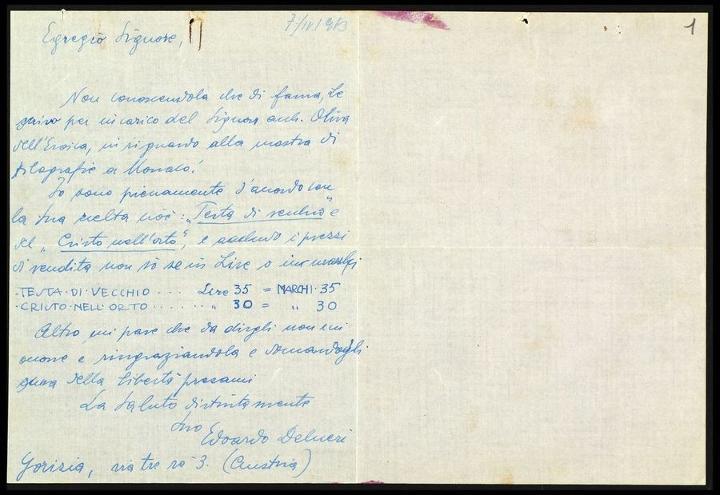 7/IV/913
1
Egregio Signore,
Non conoscendola che di fama, Le
scrivo per incarico del Signor arch. Oliva
dell'Eroica, in riguardo alla mostra di
silografie a Monaco.
Io sono pienamente d'accordo con
la Sua scelta cioè: „Testa di vecchio" e
del „Cristo nell'orto", e accludo i prezzi
di vendita non so se in Lire o in marchi
·TESTA·DI·VECCHIO···· Lire 35 = MARCHI·35
·CRISTO·NELL'ORTO······ „ 30 = „ 30
Altro mi pare che da dirgli non mi
e ringraziandola e domandogli
scusa della libertà presami
La Saluto distintamente
Suo
Edoardo Delneri
Gorizia, via tre rè 3. (Austria)